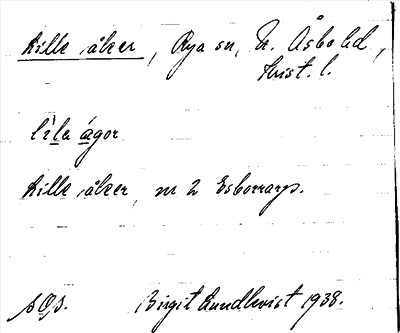 Lille åker, Rya sn, N. Åsbo hd,
Krist. l.
lìlə ágər
Lille åker, nr 2 Esborrarp.
Birgit Lundkvist 1938.